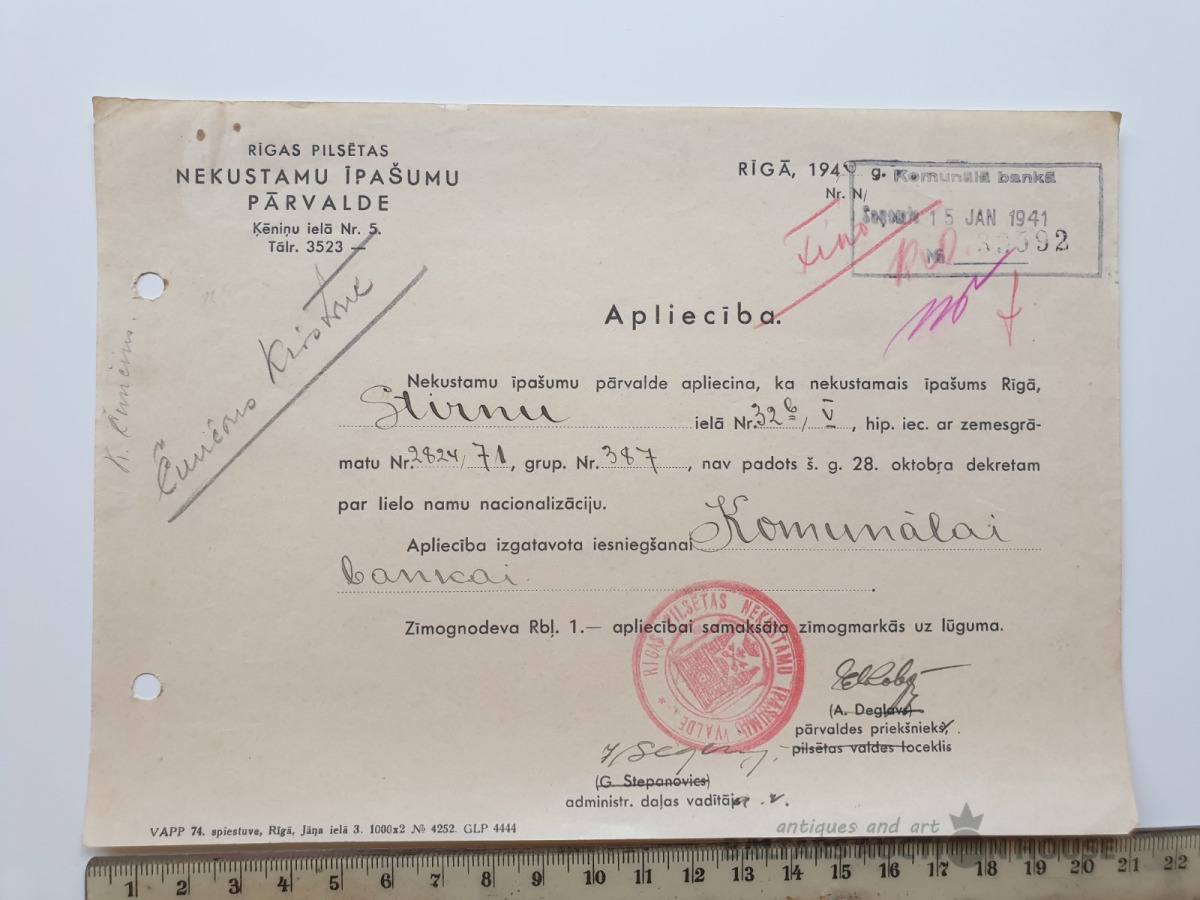 RĪGAS PILSĒTAS
NEKUSTAMU ĪPAŠUMU
PĀRVALDE
Ķēniņu ielā Nr. 5.
Tālr. 3523 —
RĪGĀ, 194 g.
Nr. N/
Komunālā bankā
Saņemts 15 JAN 1941
№ 592
Apliecība.
Nekustamu īpašumu pārvalde apliecina, ka nekustamais īpašums Rīgā,
Stirnu ielā Nr. 32b/V, hip. iec. ar zemesgrā-
matu Nr. 2824/71, grup. Nr. 387, nav padots š. g. 28. oktobŗa dekretam
par lielo namu nacionalizāciju.
Apliecība izgatavota iesniegšanai Komunālai
bankai.
Zīmognodeva Rbļ. 1.— apliecībai samaksāta zimogmarkās uz lūguma.
RĪGAS PILSĒTAS NEKUSTAMU ĪPAŠUMU
(A. Degļavs)
pārvaldes priekšnieks,
pilsētas valdes loceklis
(G. Stepanovics)
administr. daļas vadītāja v.
VAPP 74. spiestuve, Rīgā, Jāņa ielā 3. 1000x2 № 4252. GLP 4444
antiques and art
AUCTION HOUSE
1 2 3 4 5 6 7 8 9 10 11 12 13 14 15 16 17 18 19 20 21 22